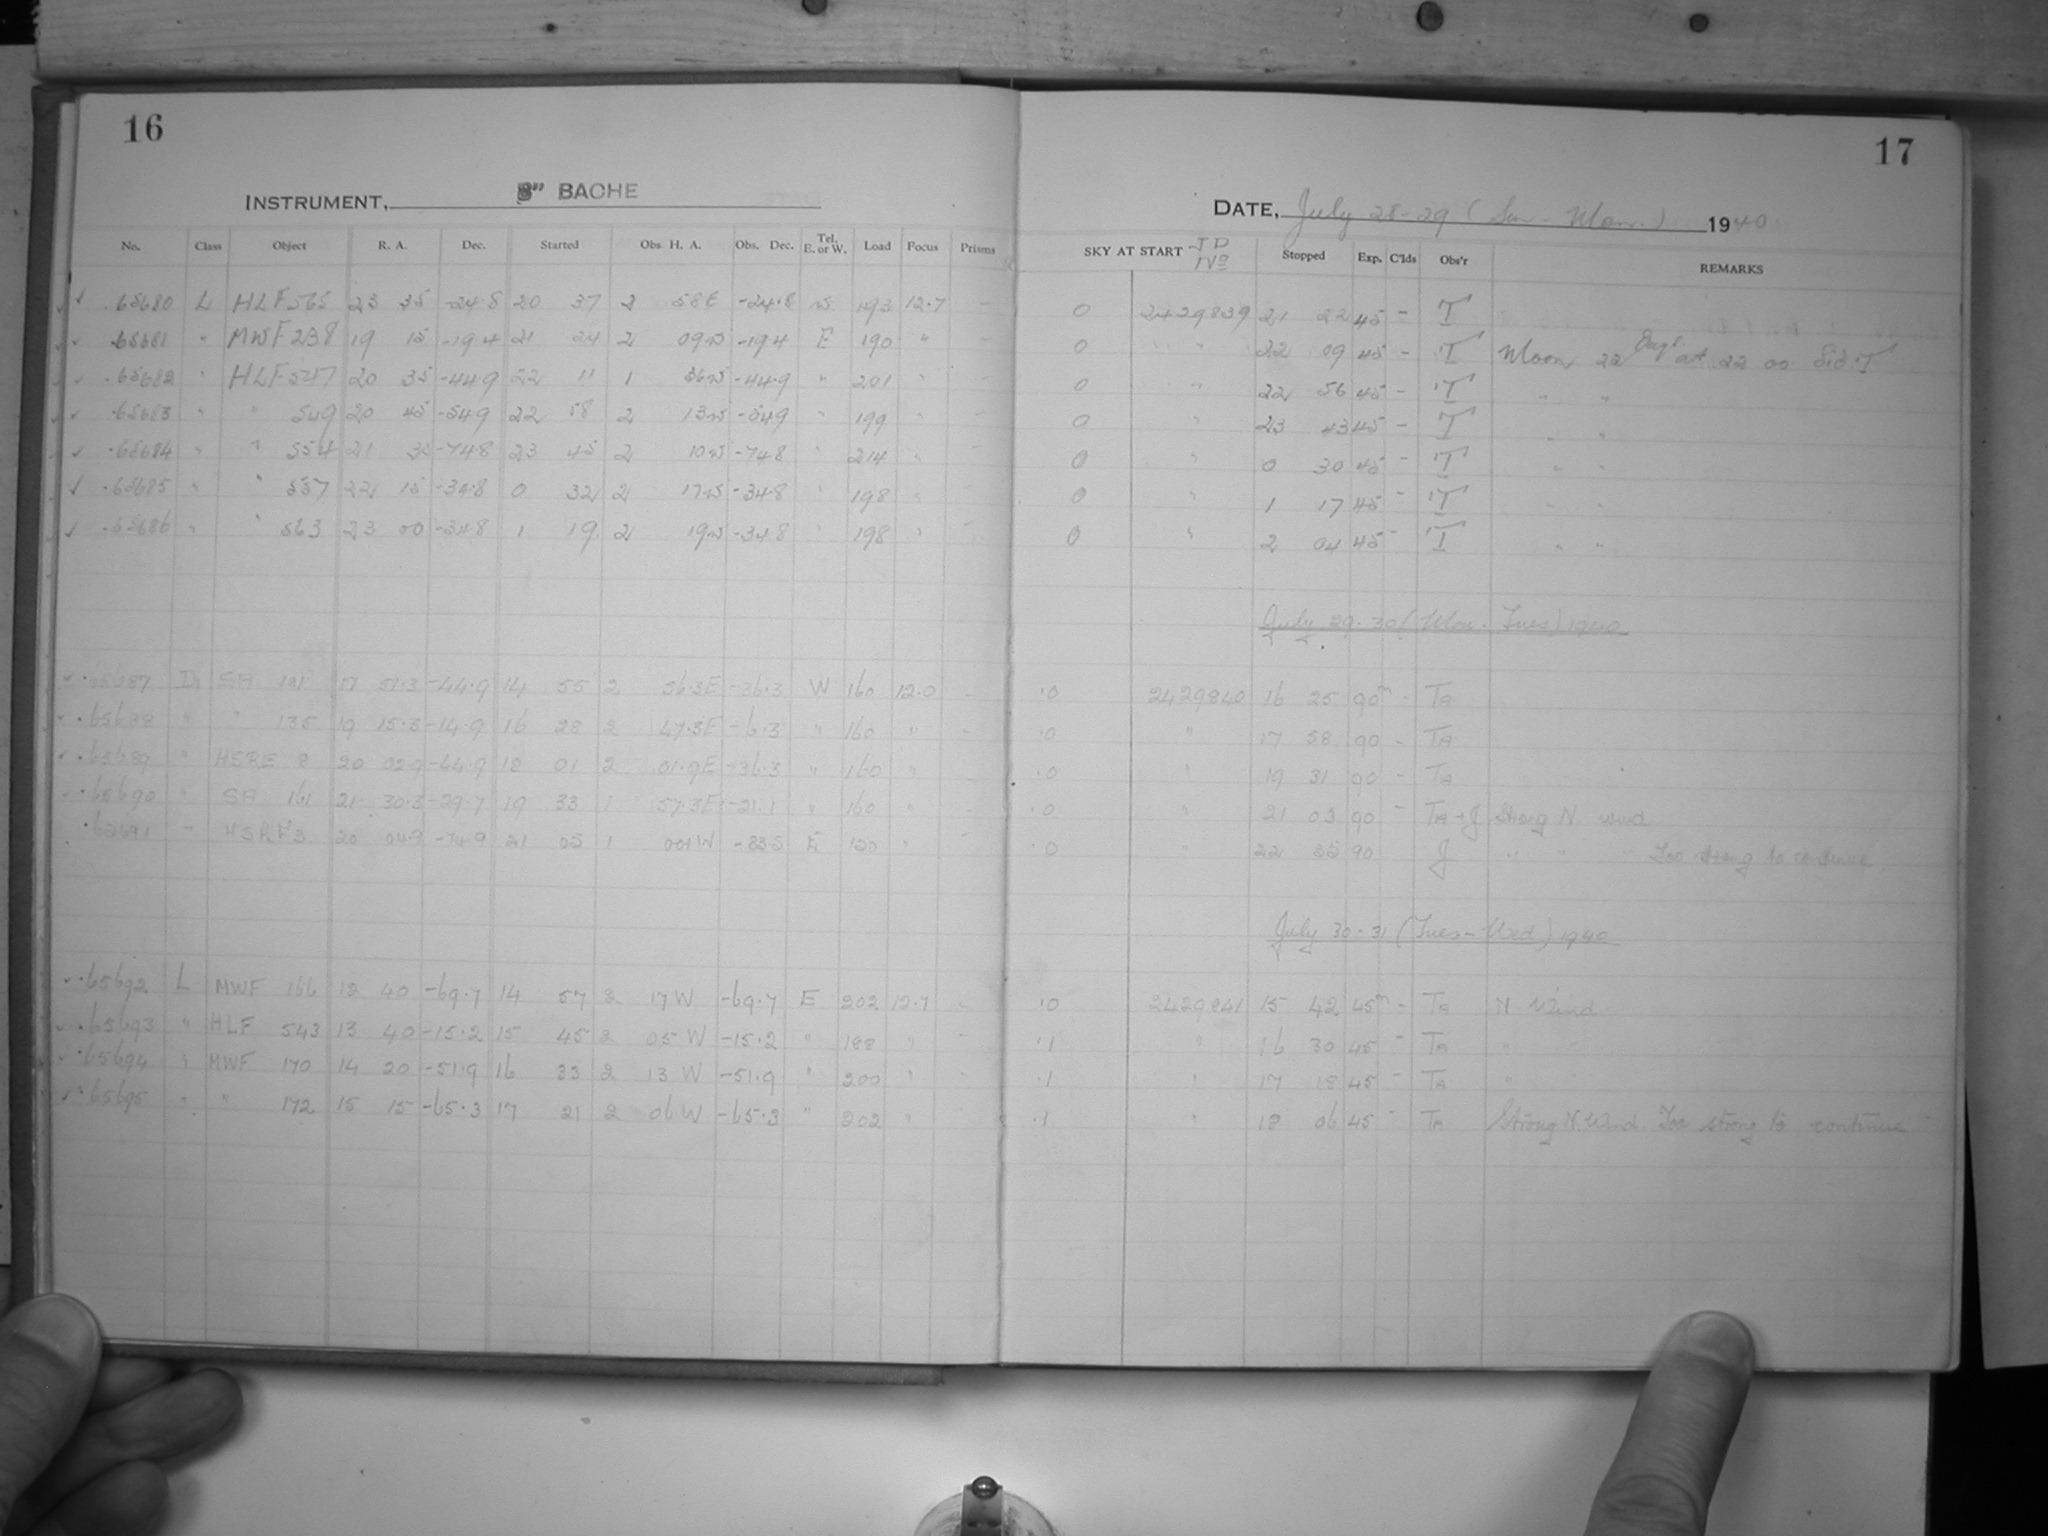 16
INSTRUMENT, 8" BACHE
No. Class Object R. A. Dec. Started Obs. H. A. Obs. Dec. Tel. E. or W. Load Focus Prisms
65680 L HLF 565 23 35 -24.8 20 37 2 58E -24.8 W 193 12.7 -
65681 " MWF 238 19 15 -19.4 21 24 2 09W -19.4 E 190 " -
65682 " HLF 547 20 35 -44.9 22 11 1 36W -44.9 " 201 " -
65683 " " 549 20 45 -54.9 22 58 2 13W -54.9 " 199 -
65684 " " 554 21 35 -74.8 23 45 2 10W -74.8 " 214 " -
65685 " " 557 22 15 -34.8 0 32 2 17W -34.8 " 198 " -
65686 " " 563 23 00 -34.8 1 19 2 19W -34.8 " 198 " -
65687 SA 17 51.3 -44.9 14 55 2 56.3E -36.3 W 160 12.0 -
65688 " " 135 19 15.3 -14.9 16 28 2 47.3E -6.3 " 160 " -
65689 " 8 20 02.9 -44.9 18 01 2 01.9E -36.3 " 160 " -
65690 " SA 161 21 30.3 -29.7 19 33 1 57.3E -21.1 " 160 " -
65691 20 04.9 -74.9 21 05 1 E 150 " -
65692 L MWF 166 12 40 -69.7 14 57 2 17W -69.7 E 202 12.7 -
65693 " HLF 543 13 40 -15.2 15 45 2 05W -15.2 " 188 " -
65694 " MWF 170 14 20 -51.9 16 33 2 13W -51.9 " 200 " -
65695 " " 172 15 15 -65.3 17 21 2 06W -65.3 " 202 " -
17
DATE, July 28-29 (Sun - Mon.) 1940
SKY AT START JD No Stopped Exp. C'lds Obs'r REMARKS
0 2429839 21 22 45 - T
0 " 22 09 45 - T Moon 22 at 22 00 Sid. T
0 " 22 56 45 - T " "
0 " 23 43 45 - T " "
0 " 0 30 45 - T " "
0 " 1 17 45 - T " "
0 " 2 04 45 - T " "
July 29-30 (Mon. Tues) 1940
.0 2429840 16 25 90m - TA
.0 " 17 58 90 - TA
.0 " 19 31 90 - TA
.0 " 21 03 90 - TA+J Strong N. wind
.0 " 22 35 90 J " " " Too strong to continue
July 30-31 (Tues-Wed) 1940
.0 2429841 15 42 45m - TA N Wind
.1 " 16 30 45 - TA "
.1 " 17 18 45 - TA "
.1 " 18 06 45 - TA Strong N. Wind. Too strong to continue